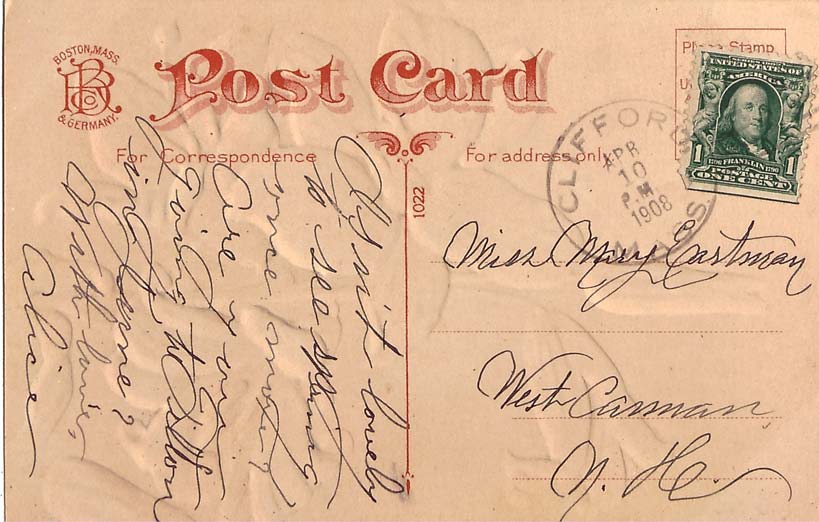 BOSTON, MASS.
BRCo
& GERMANY.
Post Card
Place Stamp
For Correspondence
For address only.
1022
CLIFFORD
APR
10
P.M
1908
MASS
SERIES 1902
UNITED STATES OF
AMERICA
1 1790 FRANKLIN 1790 1
POSTAGE
ONE CENT
Isn't it lovely
to see spring
once more?
Are you
going to Tilton
in June?
With love,
Alice
Miss Mary Eastman
West Canaan,
N. H.